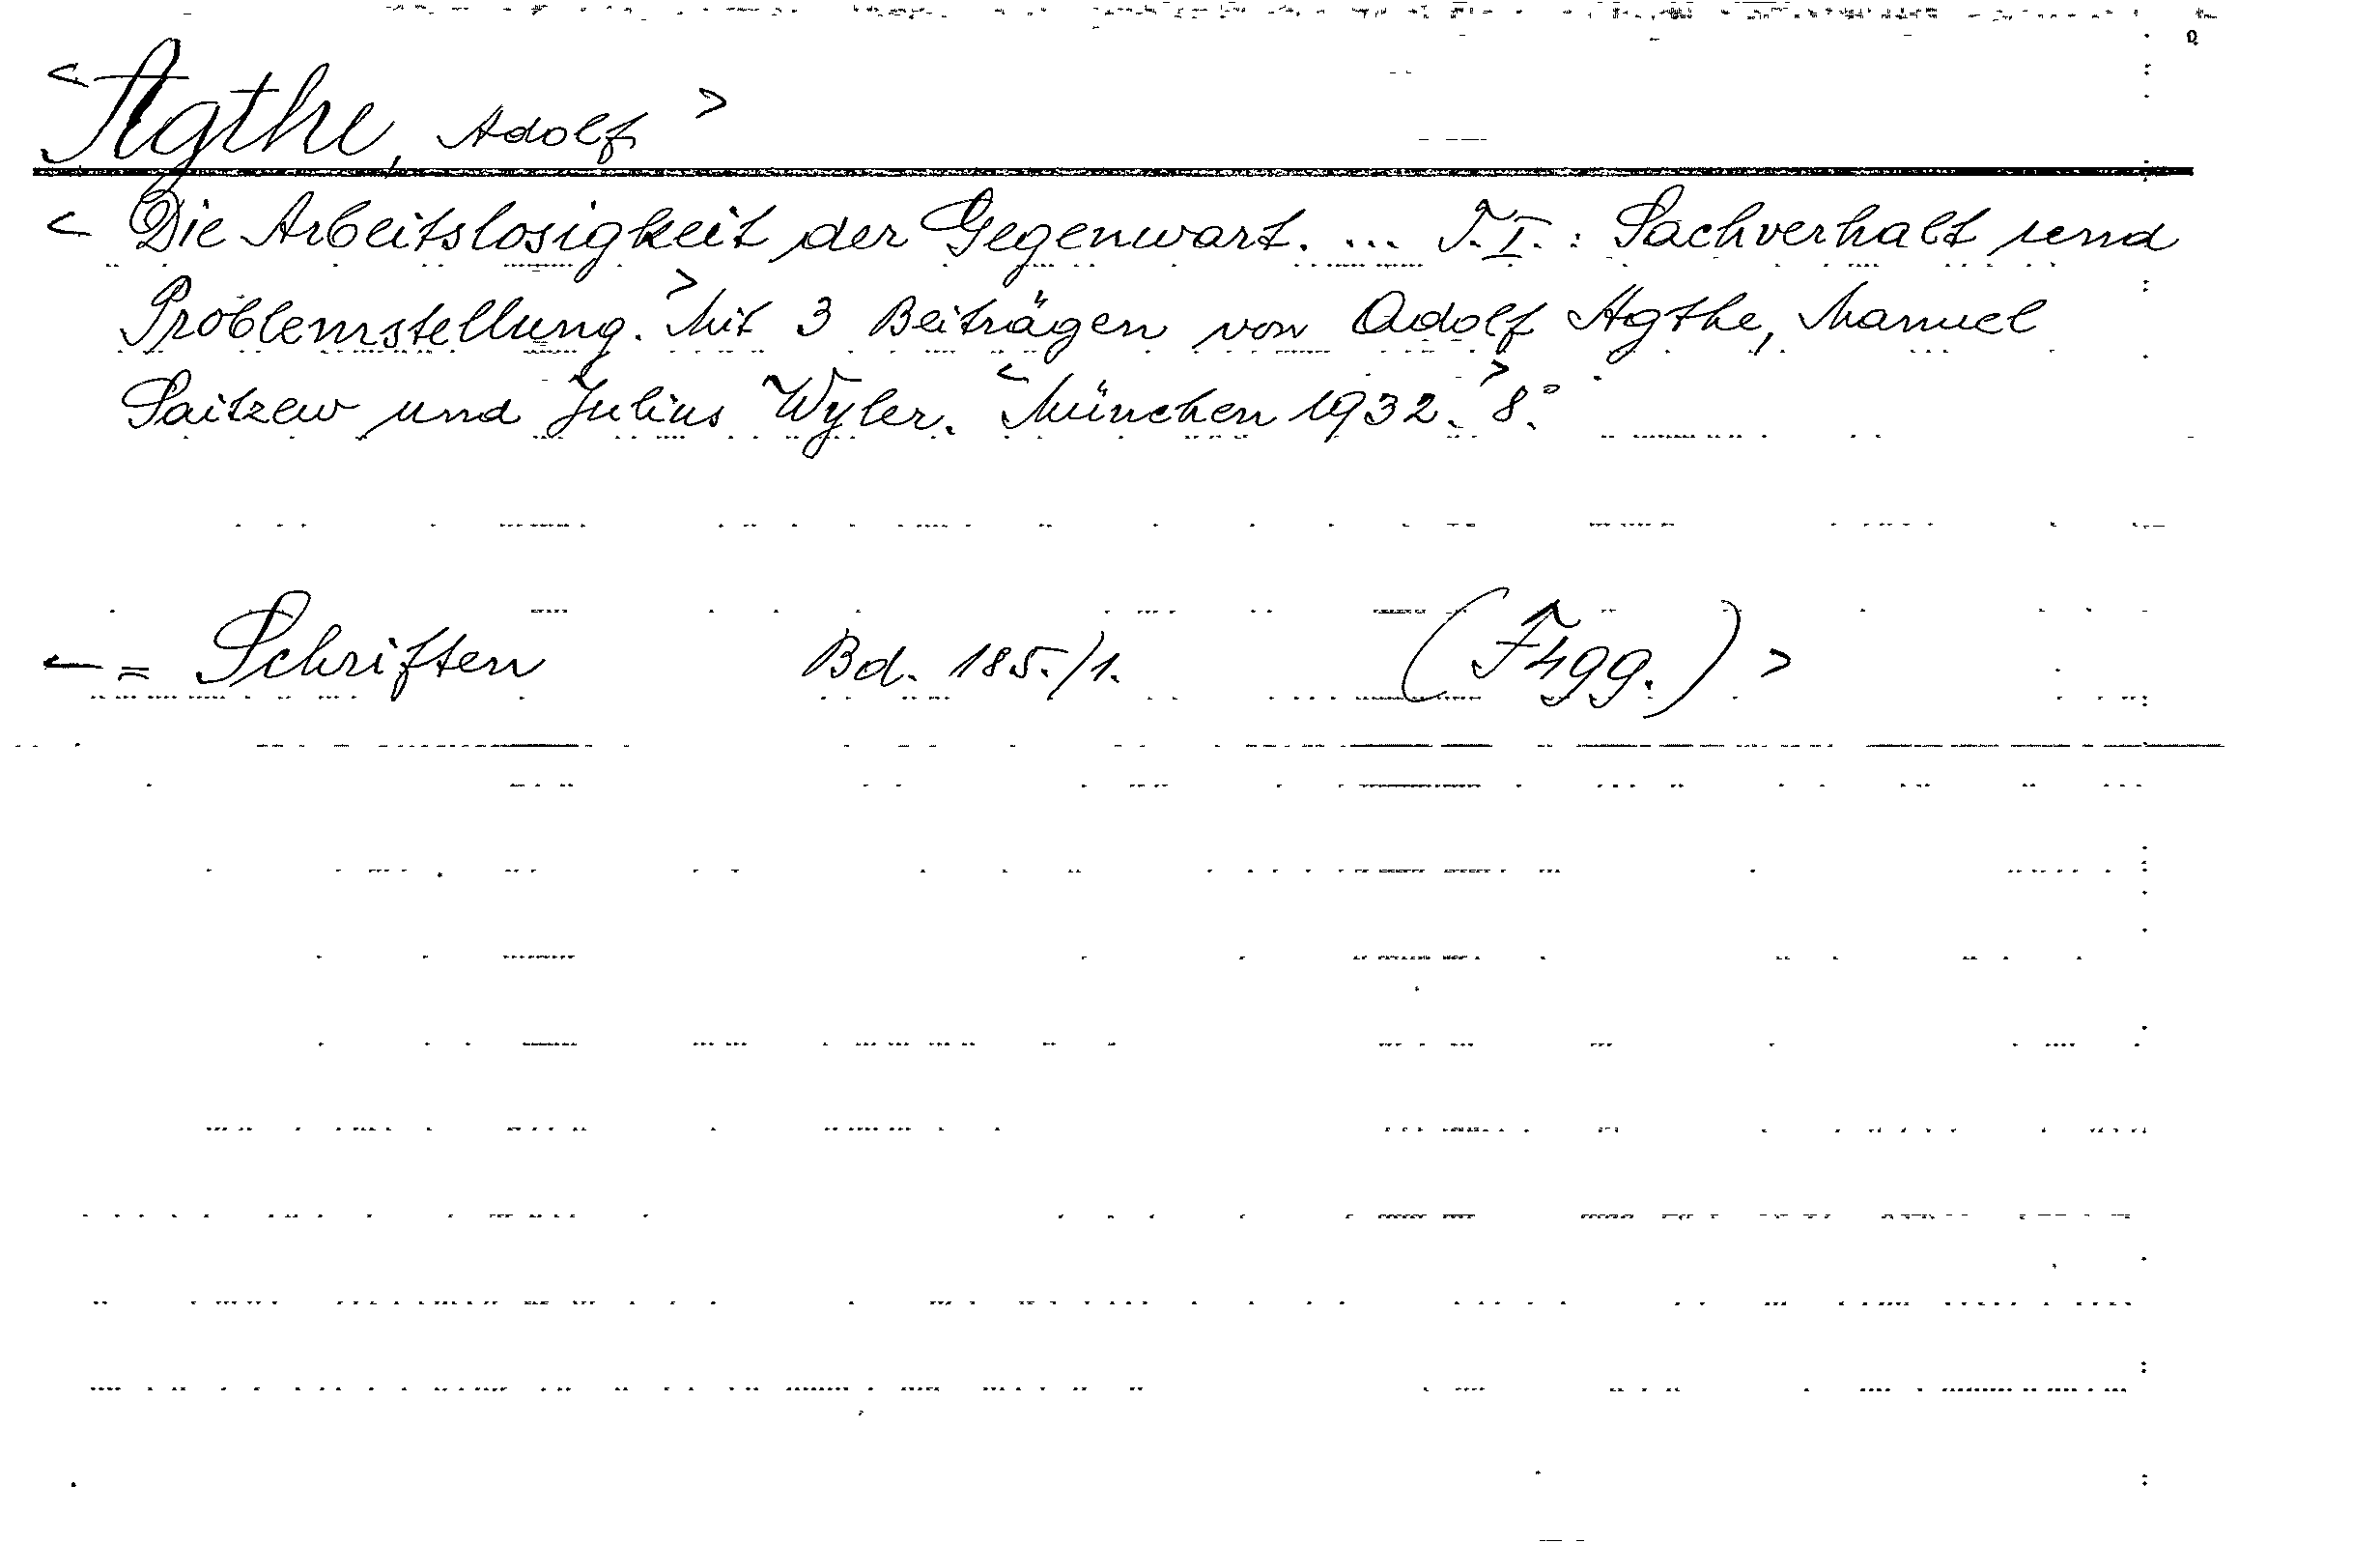 < Agthe, Adolf >
< Die Arbeitslosigkeit der Gegenwart. ... T. I. : Sachverhalt und
Problemstellung. > Mit 3 Beiträgen von Adolf Agthe, Manuel
Saitzew und Julius Wyler. < München 1932. > 8°.
< = Schriften Bd. 185./1. (F499.) >